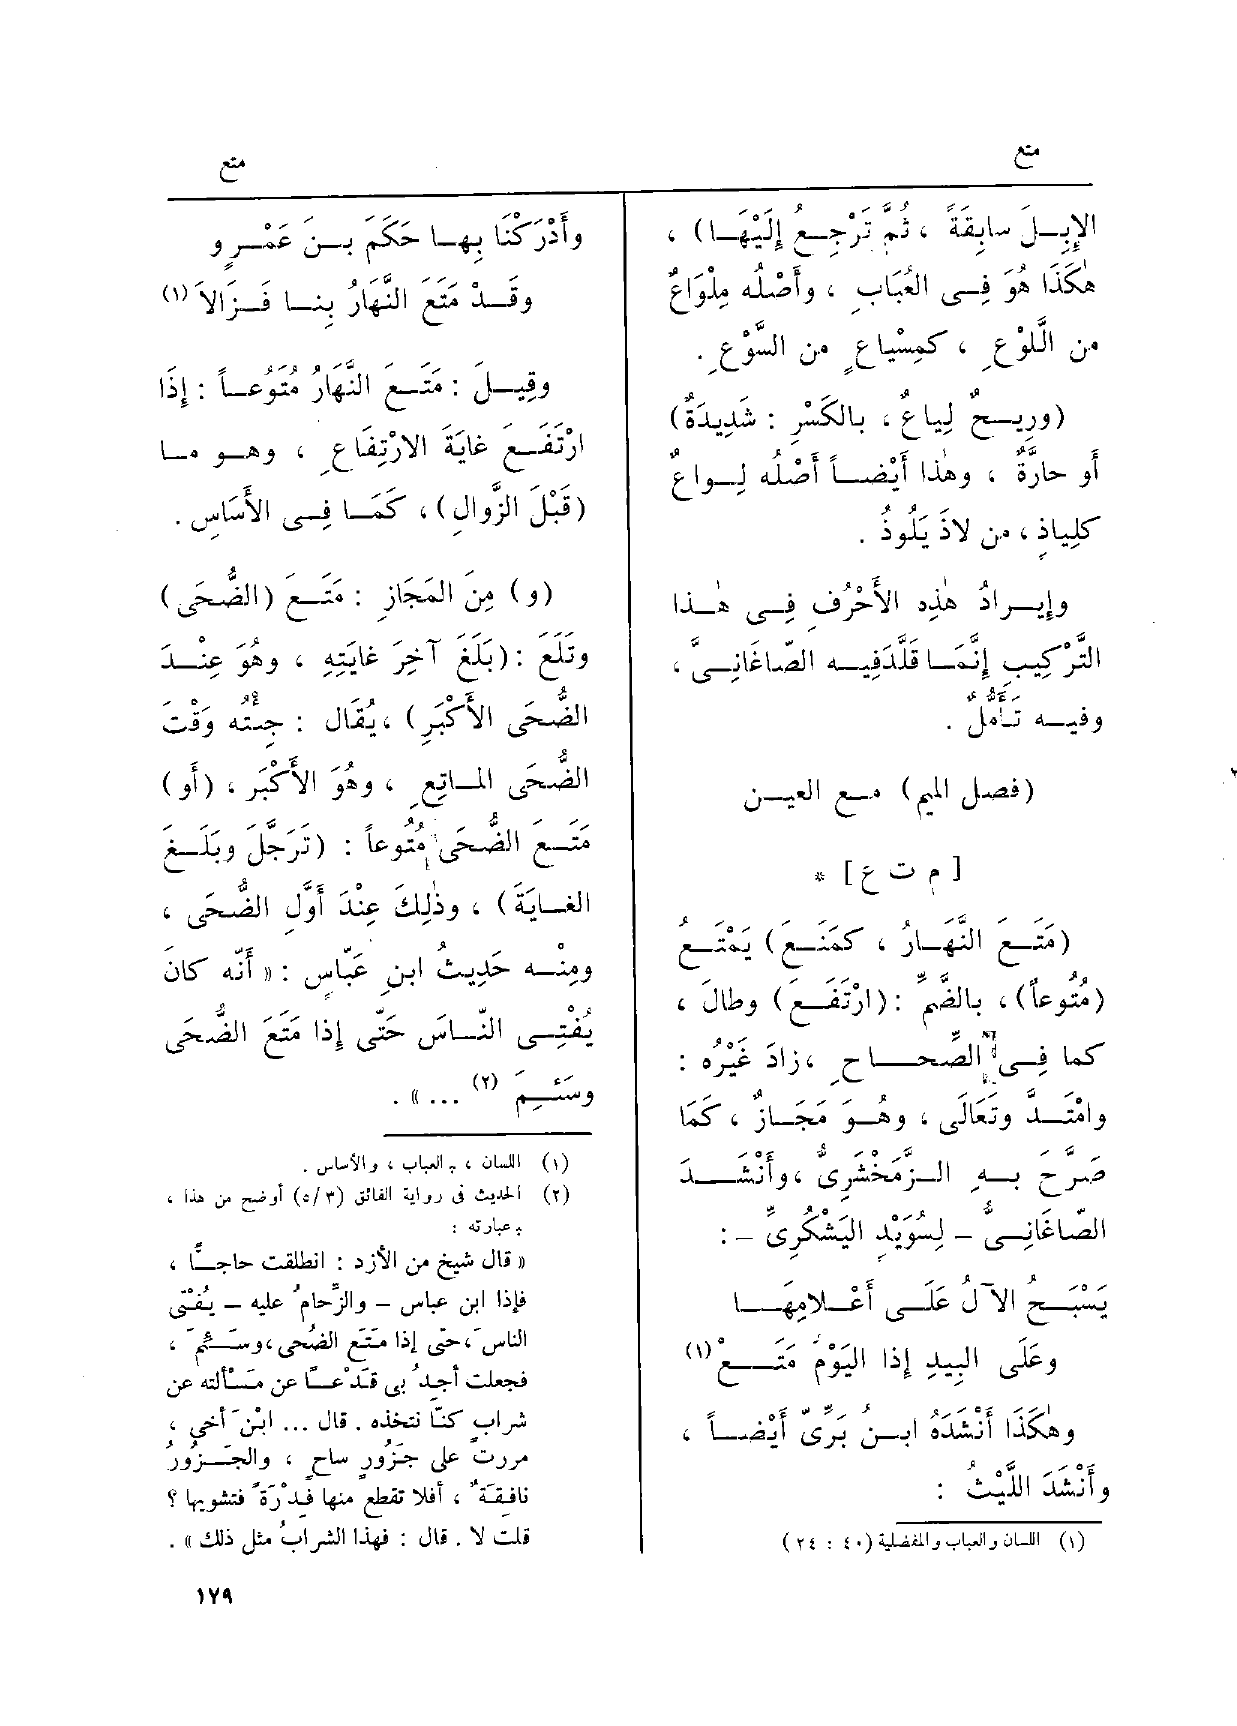 متع
متع
الإِبِـلَ سابِقَةً ، ثُمَّ تَرْجِـعُ إِلَيْهَـا) ،
هٰكَذَا هُوَ فِـى العُبَابِ ، وأَصْلُه مِلْوَاعٌ
من اللَّوْعِ ، كمِسْياعٍ من السَّوْعِ .
(ورِيـحٌ لِياعٌ ، بالكَسْرِ : شَدِيدَةٌ)
أو حارَّةٌ ، وهٰذا أَيْضـاً أَصْلُه لِـواعٌ
كلِياذٍ ، من لاذَ يَلُوذُ .
وإِيـرادُ هٰذِه الأَحْرُفِ فِـى هٰـذا
التَّرْكِيبِ إِنَّمَـا قَلَّدَفِيـه الصّاغَانِـىَّ ،
وفيـه تَأَمُّلٌ .
(فصل الميم) مـع العيـن
[ م ت ع ] *
(مَتَـعَ النَّهـارُ ، كمَنَـعَ) يَمْتَـعُ
(مُتُوعاً) ، بالضَّمِّ : (ارْتَفَـعَ) وطالَ ،
كما فِـى الصِّحـاحِ ، زادَ غَيْرُه :
وامْتَـدَّ وتَعَالَى ، وهُـوَ مَجَـازٌ ، كَمَا
صَرَّحَ بـهِ الـزَّمَخْشَرِىُّ ، وأَنْشَـدَ
الصّاغَانِـىُّ - لِسُوَيْدٍ اليَشْكُرِىِّ - :
يَسْبَـحُ الآلُ عَلَـى أَعْـلامِهَـا
وعَلَى البِيدِ إذا اليَوْمُ مَتَـعْ (١)
وهٰكَذَا أَنْشَدَهُ ابـنُ بَرِّىّ أَيْضـاً ،
وأَنْشَدَ اللَّيْثُ :
(١) اللسان والعباب والمفضلية (٤٠ : ٢٤)
وأَدْرَكْنَا بِهـا حَكَمَ بـنَ عَمْـرٍو
وقَـدْ مَتَعَ النَّهَارُ بِنـا فَـزَالاَ (١)
وقِيـلَ : مَتَـعَ النَّهارُ مُتُوعـاً : إِذَا
ارْتَفَـعَ غايَةَ الارْتِفَاعِ ، وهـو مـا
(قَبْلَ الزَّوالِ) ، كَمَـا فِـى الأَسَاسِ .
(و) مِنَ المَجَازِ : مَتَـعَ (الضُّحَى)
وتَلَعَ : (بَلَغَ آخِرَ غايَتِهِ ، وهُوَ عِنْـدَ
الضُّحَى الأَكْبَرِ) ، يُقَال : جِئْتُه وَقْتَ
الضُّحَى المـاتِعِ ، وهُوَ الأَكْبَر ، (أو)
مَتَـعَ الضُّحَى مُتُوعاً : (تَرَجَّلَ وبَلَـغَ
الغـايَةَ) ، وذٰلِكَ عِنْدَ أَوَّلِ الضُّحَى ،
ومِنْـه حَدِيثُ ابنِ عَبّاسٍ : « أَنَّه كانَ
يُفْتِـى النّـاسَ حَتّى إذا مَتَعَ الضُّحَى
وسَئِـمَ (٢) ... » .
(١) اللسان ، والعباب ، والأساس .
(٢) الحديث فى رواية الفائق (٣/٥) أوضح من هذا ،
وعبارته :
« قال شيخ من الأزد : انطلقت حاجـًّا ،
فإذا ابن عباس - والزِّحامُ عليه - يُفْتى
الناسَ ، حتى إذا مَتَع الضُّحى ، وسَـئِم ،
فجعلت أجدُ بى قَدْعـًا عن مَسْألته عن
شرابٍ كنّا نتخذه . قال ... ابْنَ أخى ،
مررتُ على جَزُورٍ ساحٍ ، والجَـزُورُ
نافِقَةٌ ، أفلا تقطع منها فِدْرَةً فتشويها ؟
قلت لا . قال : فهذا الشرابُ مثل ذلك » .
١٧٩